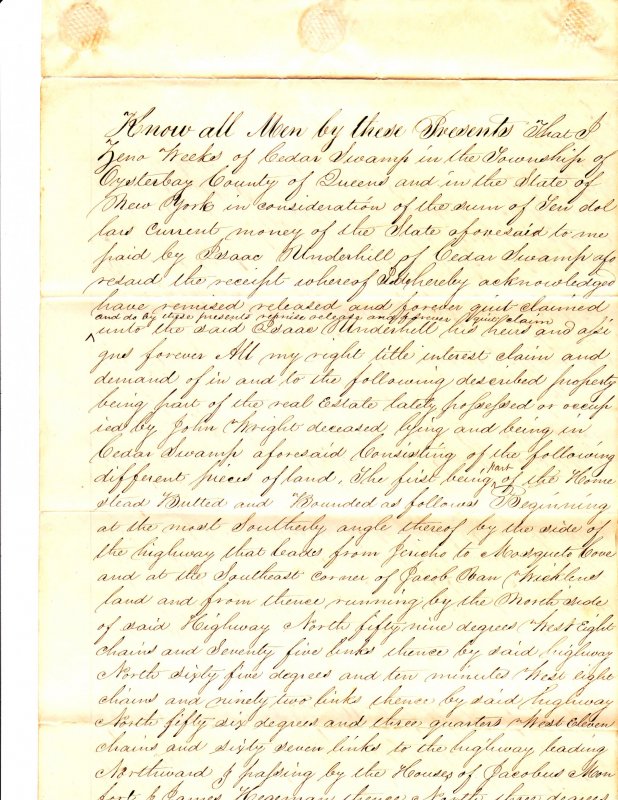 Know all Men by these Presents That I
Zeno Weeks of Cedar Swamp in the Township of
Oysterbay County of Queens and in the State of
New York in consideration of the sum of Ten dol
lars current money of the State aforesaid to me
paid by Isaac Underhill of Cedar Swamp afo
resaid the receipt whereof I do hereby acknowledge
have remised released and forever quit claimed
and do by these presents remise release and forever quit claim
unto the said Isaac Underhill his heirs and assi
gns forever All my right title interest claim and
demand of in and to the following described property
being part of the real Estate lately possessed or occup
ied by John Wright deceased lying and being in
Cedar Swamp aforesaid Consisting of the following
different pieces of land. The first being part of the Home
stead Butted and Bounded as follows Beginning
at the most Southerly angle thereof by the side of
the highway that leads from Jericho to Mosqueto Cove
and at the Southeast corner of Jacob Van Wicklens
land and from thence running by the North side
of said Highway North fifty nine degrees West Eight
chains and Seventy five links thence by said highway
North sixty five degrees and ten minutes West eight
chains and ninety two links thence by said highway
North fifty six degrees and three quarters West eleven
chains and sixty seven links to the highway leading
Northward & passing by the Houses of Jacobus Mon
fort & James Hegeman thence North three degrees